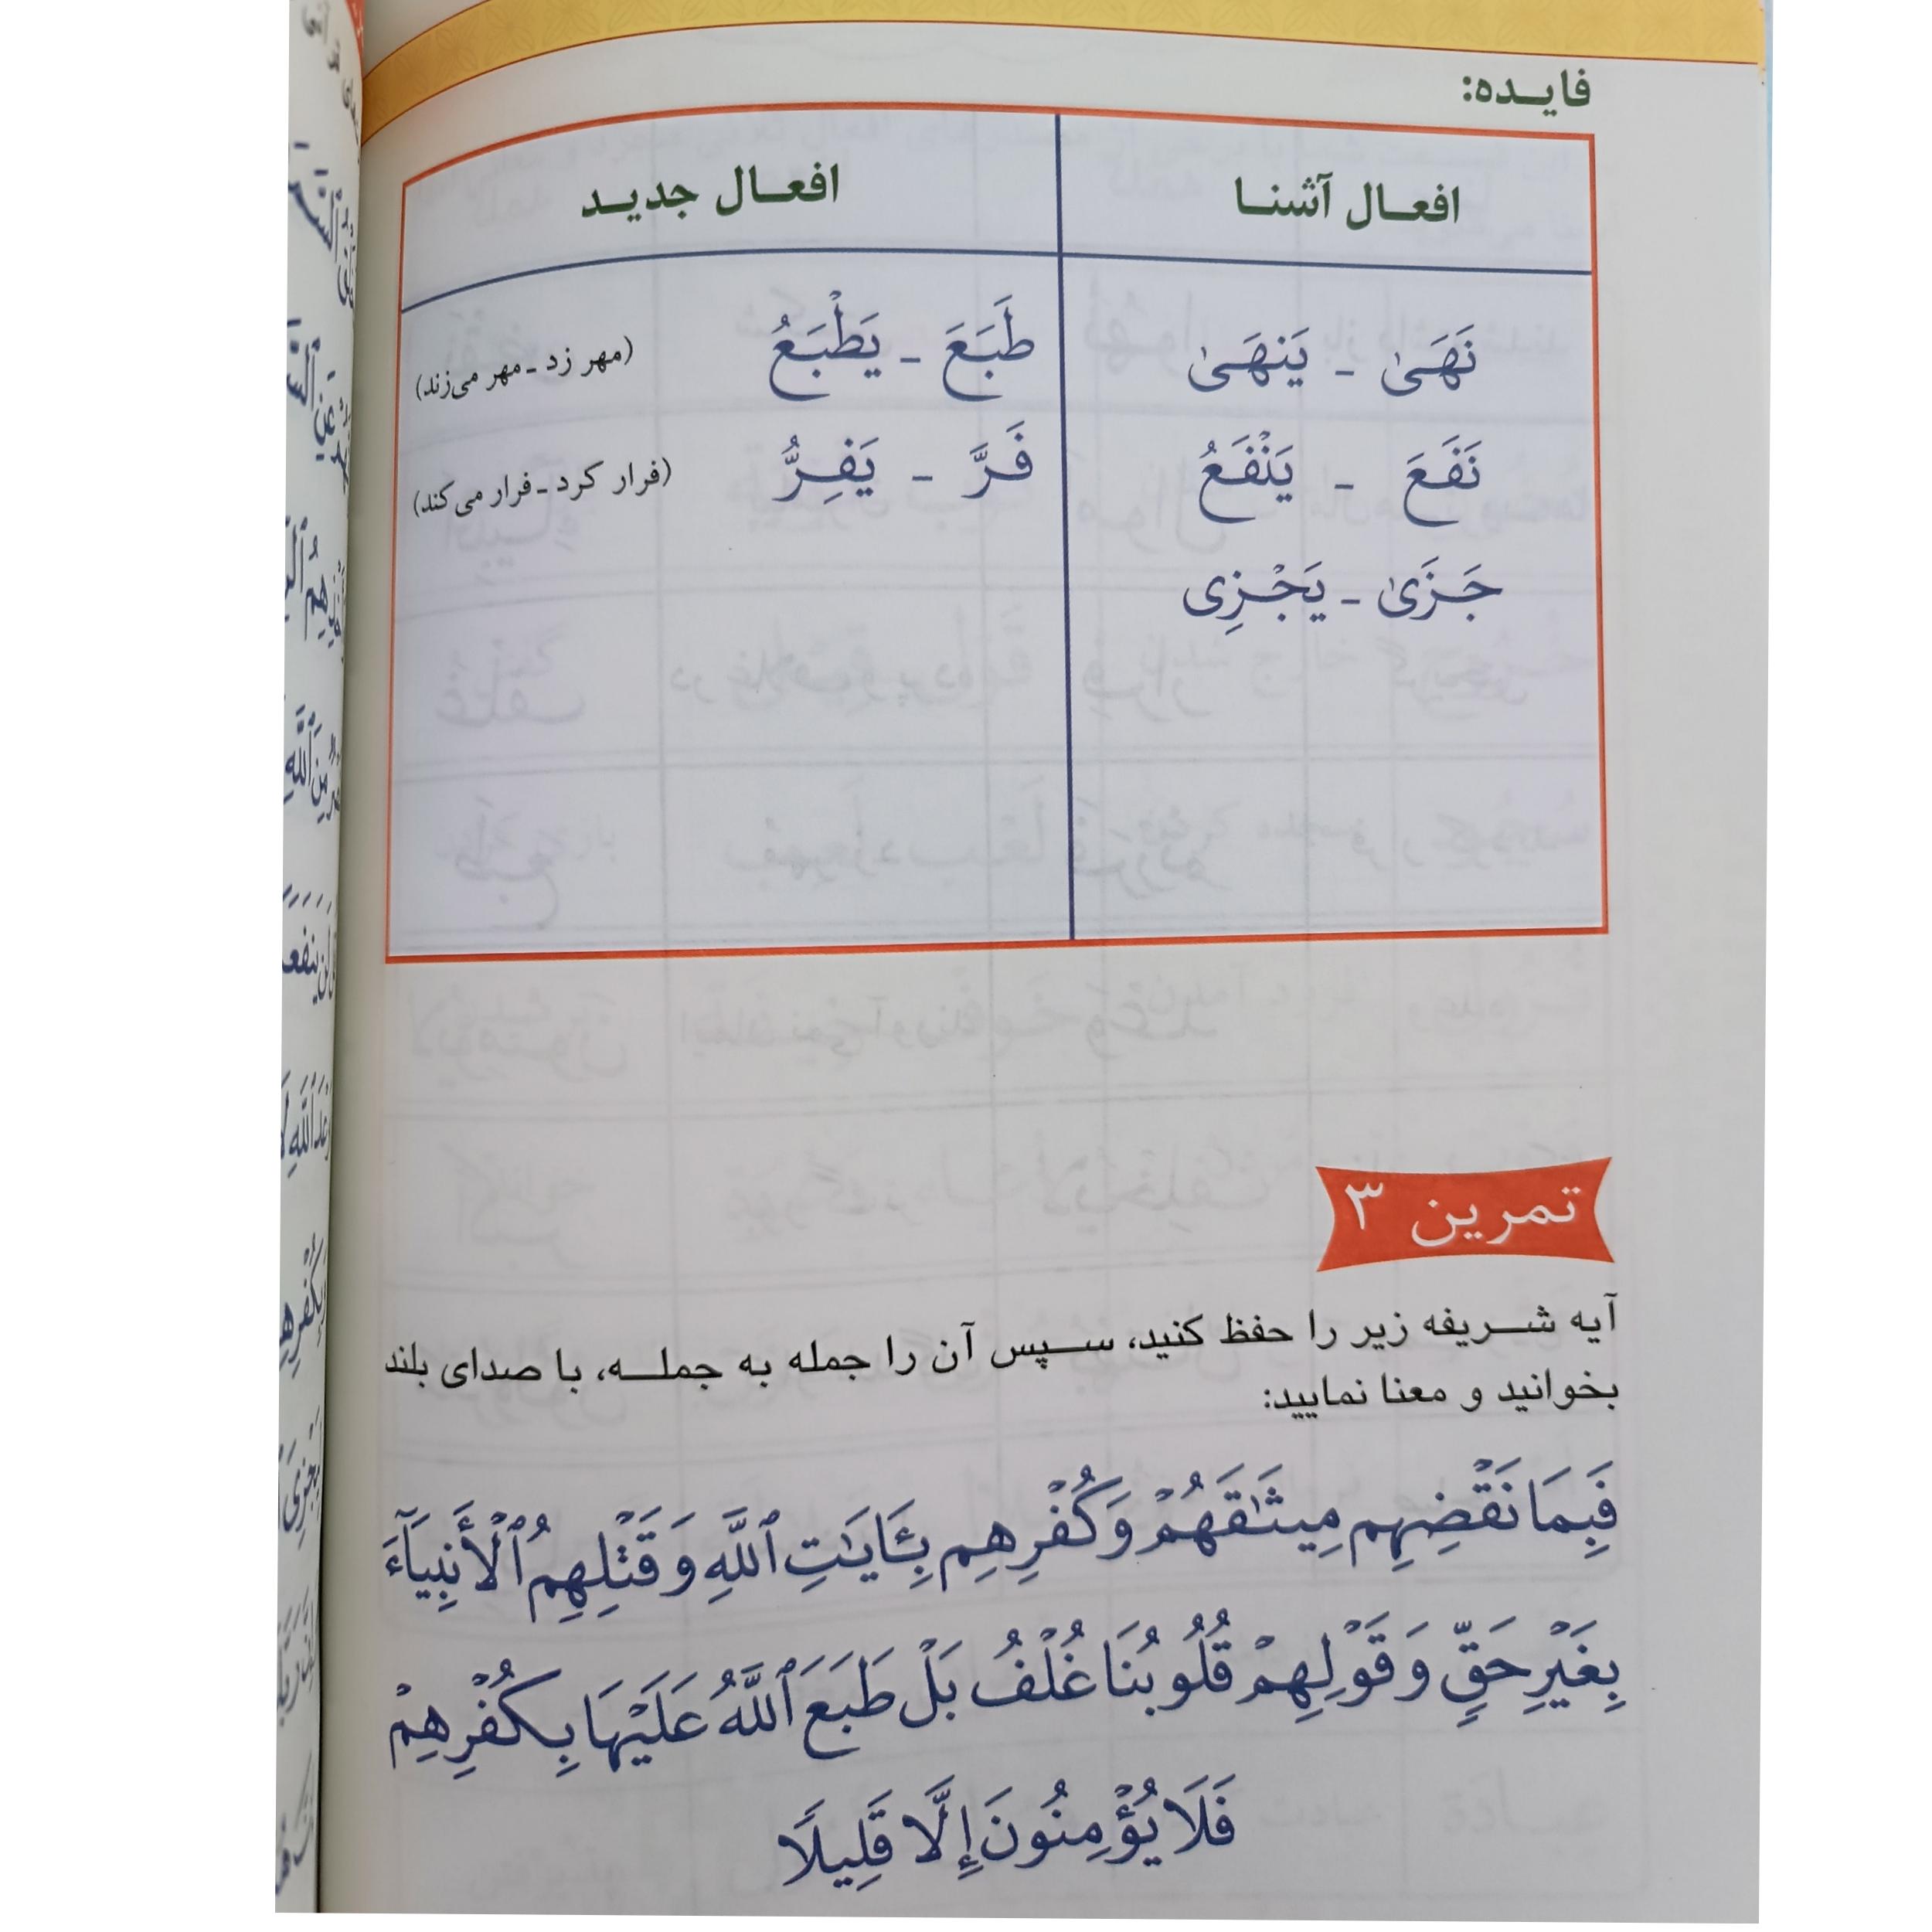 فایده:
افعال آشنا
افعال جدید
نَهَىٰ - يَنهَىٰ
طَبَعَ - يَطْبَعُ (مهر زد - مهر می‌زند)
نَفَعَ - يَنْفَعُ
فَرَّ - يَفِرُّ (فرار کرد - فرار می‌کند)
جَزَىٰ - يَجْزِى
تمرین ۳
آیه شریفه زیر را حفظ کنید، سپس آن را جمله به جمله، با صدای بلند
بخوانید و معنا نمایید:
فَبِمَا نَقْضِهِم مِيثَٰقَهُمْ وَ كُفْرِهِم بِـَٔايَٰتِ ٱللَّهِ وَ قَتْلِهِمُ ٱلْأَنبِيَآءَ
بِغَيْرِ حَقٍّ وَ قَوْلِهِمْ قُلُوبُنَا غُلْفُ بَلْ طَبَعَ ٱللَّهُ عَلَيْهَا بِكُفْرِهِمْ
فَلَا يُؤْمِنُونَ إِلَّا قَلِيلًا